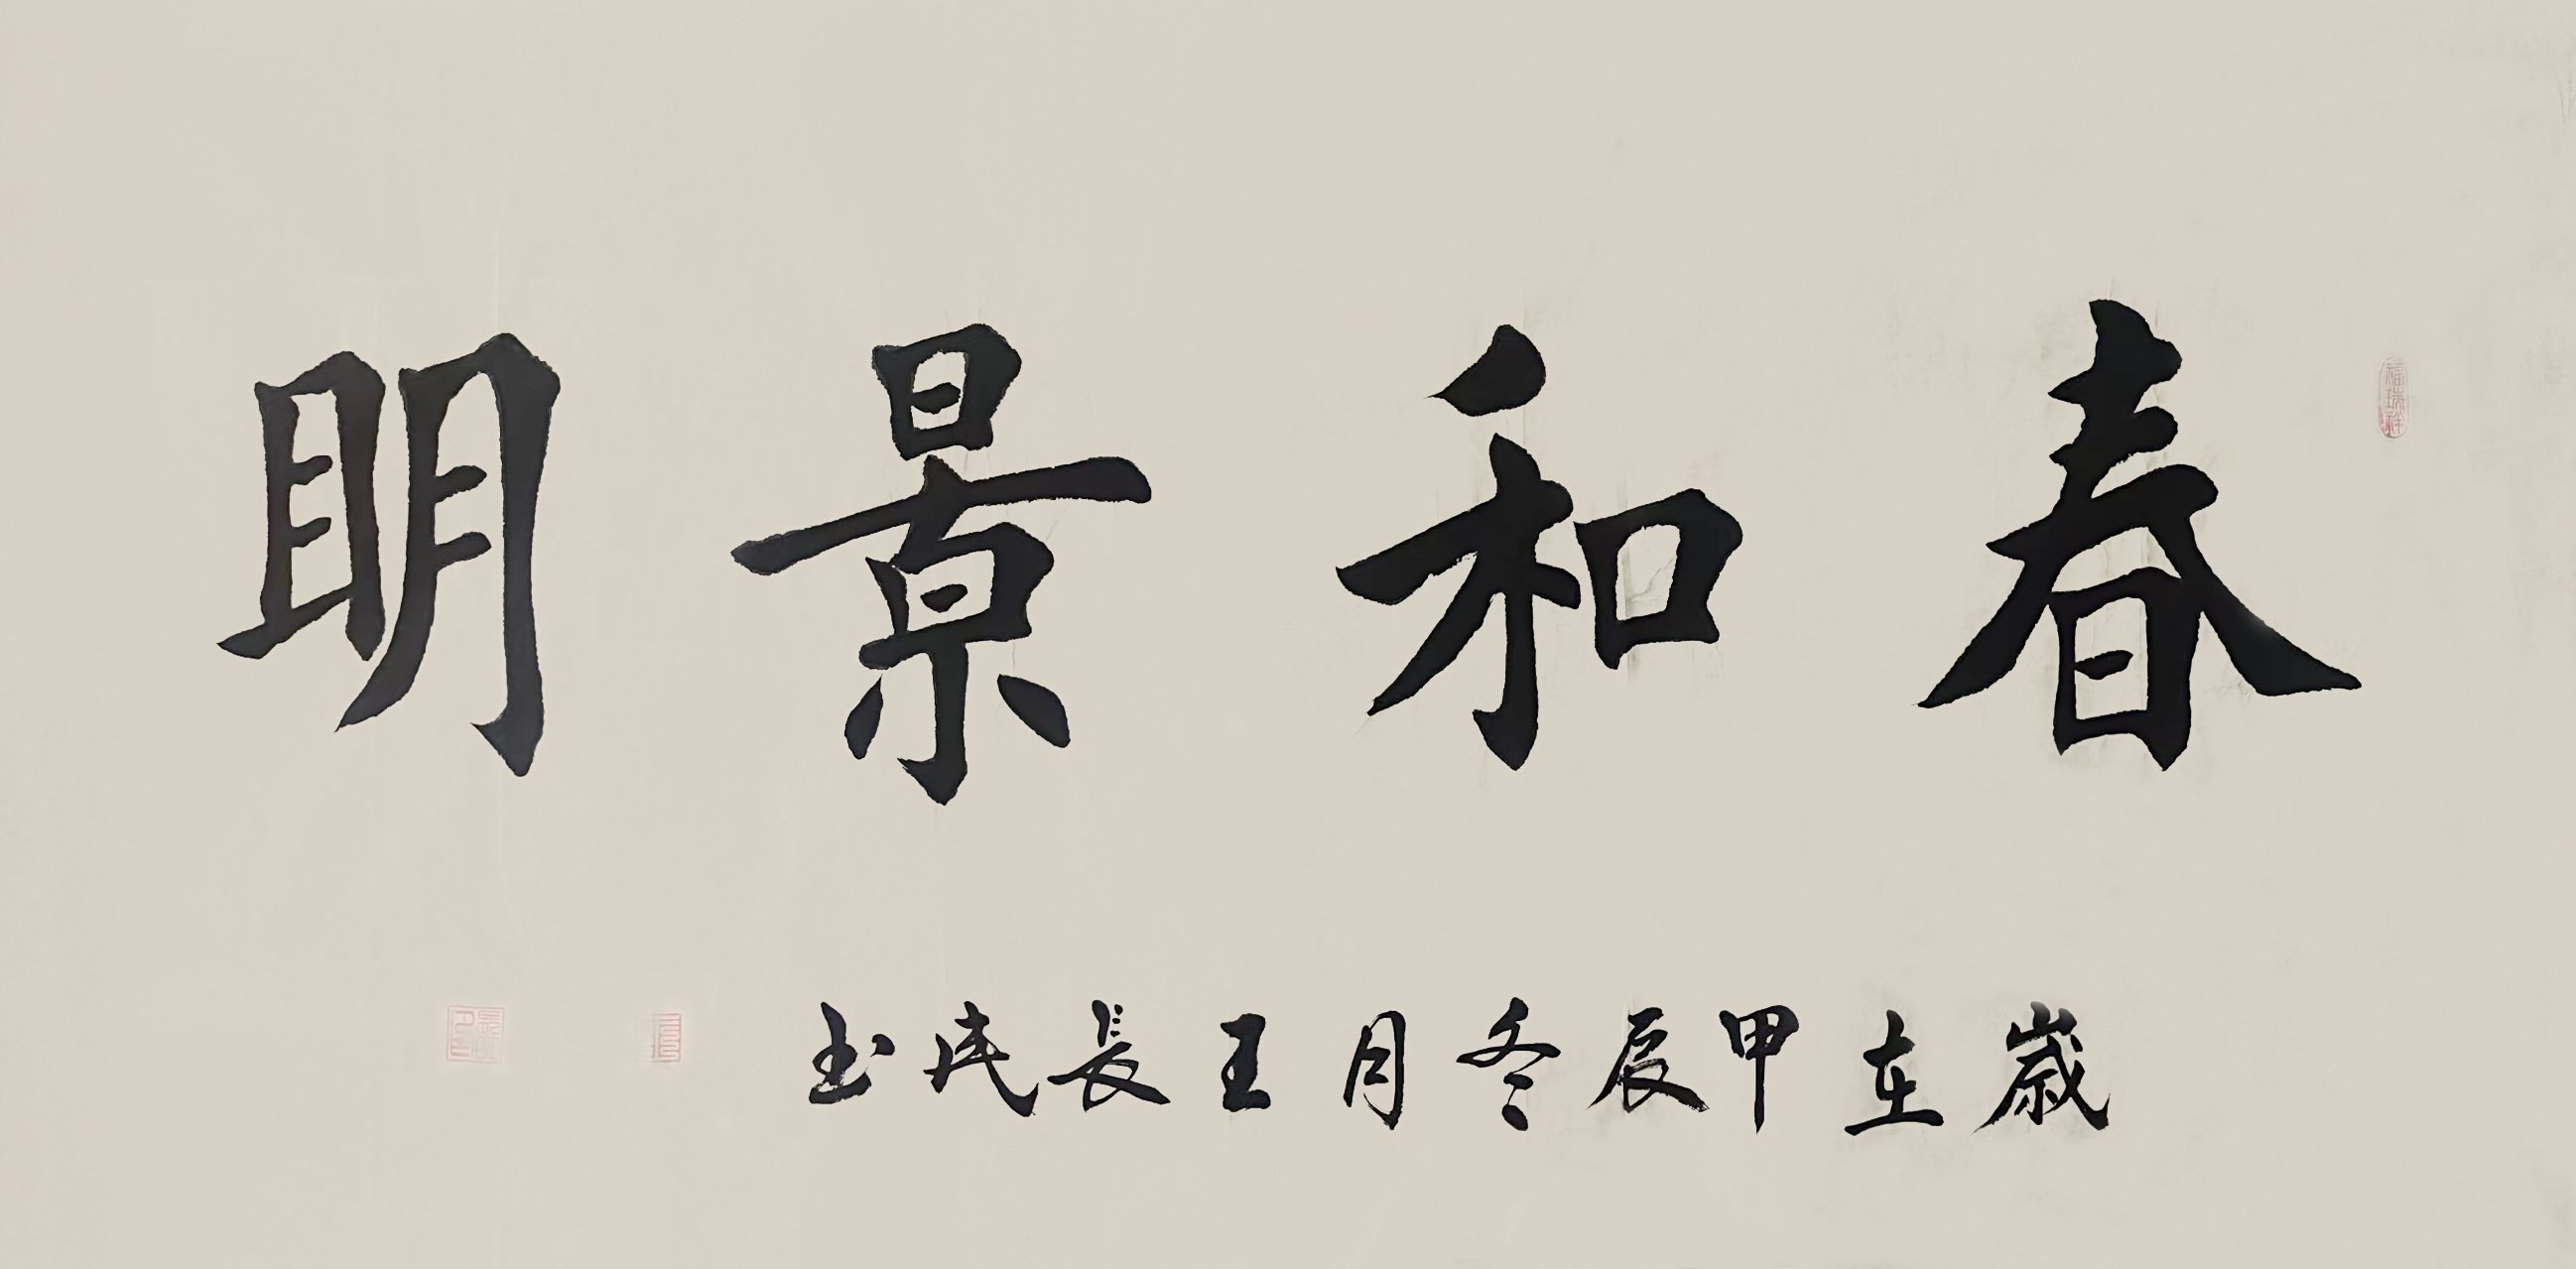 春和景明
福瑞祥
歲在甲辰冬月王長民书